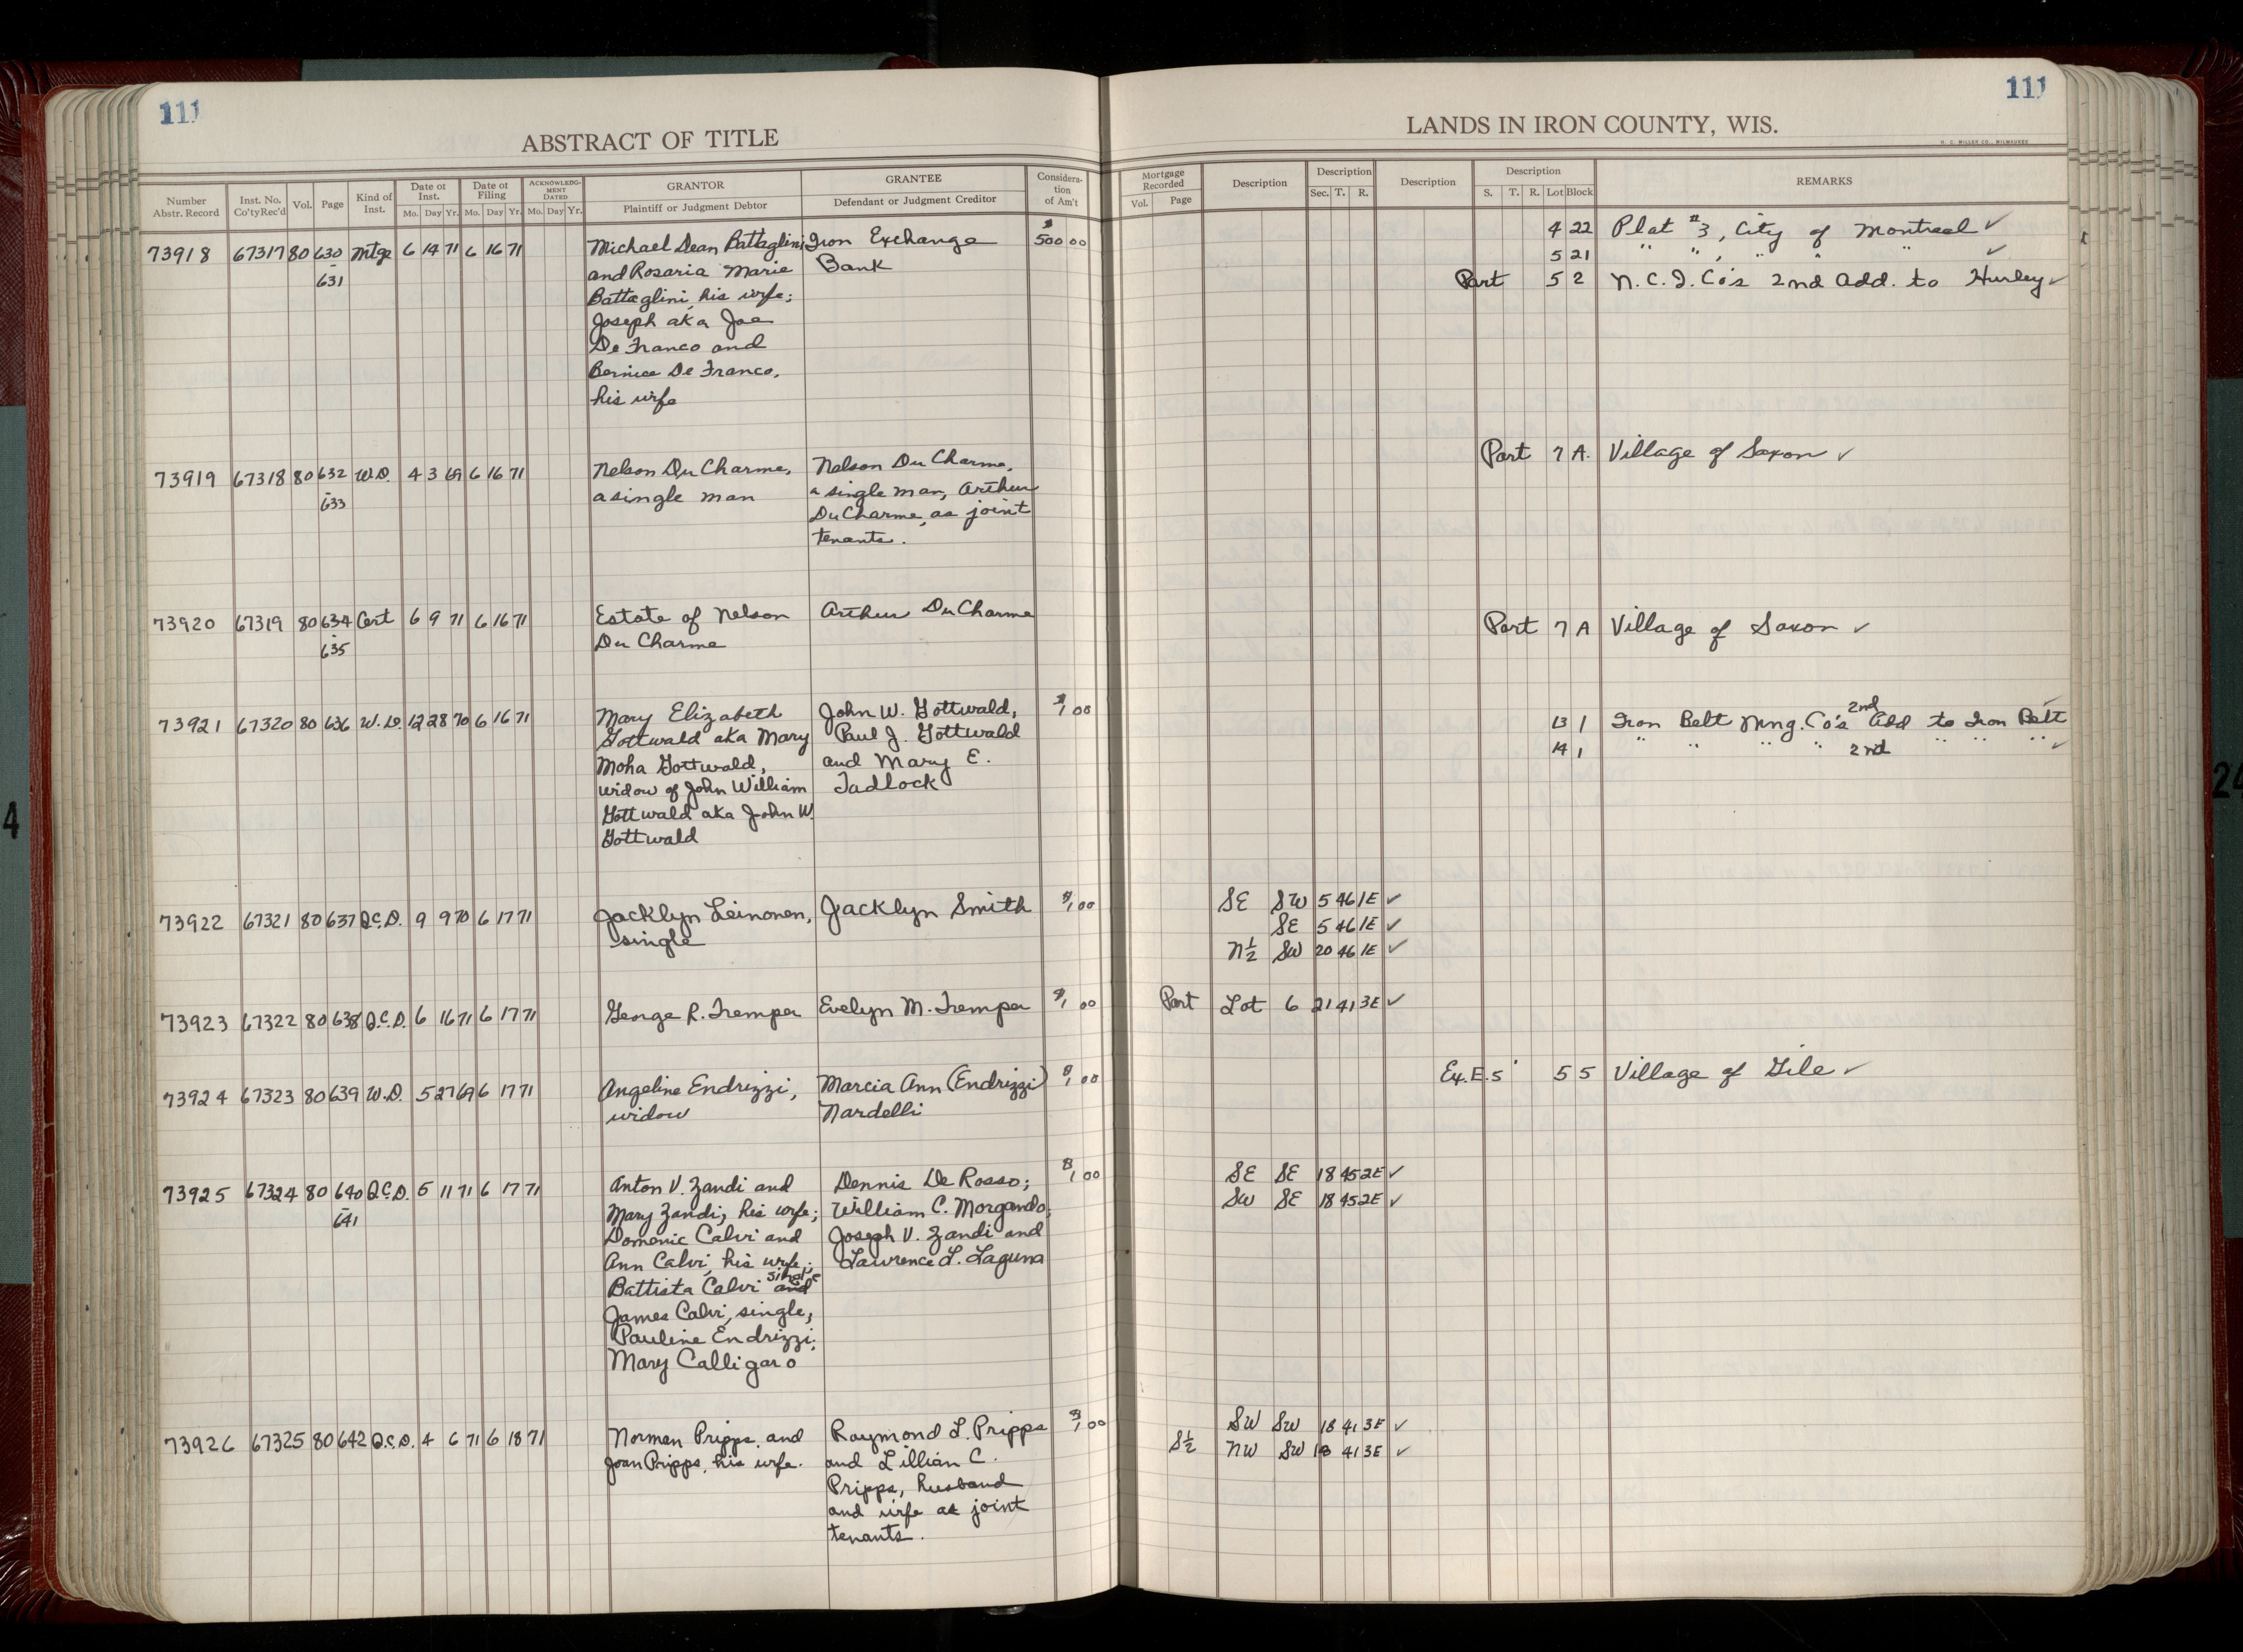 111
111
ABSTRACT OF TITLE
LANDS IN IRON COUNTY, WIS.
H. C. MILLER CO., MILWAUKEE
Number Abstr. Record Inst. No. Co'tyRec'd Vol. Page Kind of Inst. Date of Inst. Mo. Day Yr. Date of Filing Mo. Day Yr. ACKNOWLEDGMENT DATED Mo. Day Yr. GRANTOR Plaintiff or Judgment Debtor GRANTEE Defendant or Judgment Creditor Consideration of Am't
Mortgage Recorded Vol. Page Description Description Sec. T. R. Description Description S. T. R. Lot Block REMARKS
73918 67317 80 630 Mtge 6 14 71 6 16 71 Michael Dean Battaglini Iron Exchange $500 00 4 22 Plat #3, City of Montreal ✓
-631 and Rosaria Marie Bank 5 21 " " , " " " ✓
Battaglini, his wife; Part 5 2 N.C.I. Co's 2nd Add. to Hurley ✓
Joseph aka Joe
De Franco and
Bernice De Franco,
his wife
73919 67318 80 632 W.D. 4 3 69 6 16 71 Nelson Du Charme, Nelson Du Charme, Part 7 A. Village of Saxon ✓
-633 a single man a single man, Arthur
DuCharme, as joint
tenants.
73920 67319 80 634 Cert 6 9 71 6 16 71 Estate of Nelson Arthur DuCharme Part 7 A Village of Saxon ✓
-635 Du Charme
73921 67320 80 636 W.D. 12 28 70 6 16 71 Mary Elizabeth John W. Gottwald, $1 00 13 1 Iron Belt Mng. Co's 2nd Add to Iron Belt ✓
Gottwald aka Mary Paul J. Gottwald 14 1 " " " " 2nd " " " " ✓
Moha Gottwald, and Mary E.
widow of John William Tadlock
Gottwald aka John W.
Gottwald
73922 67321 80 637 Q.C.D. 9 9 70 6 17 71 Jacklyn Leinonen, Jacklyn Smith $1 00 SE SW 5 46 1E ✓
single SE 5 46 1E ✓
N½ SW 20 46 1E ✓
73923 67322 80 638 Q.C.D. 6 16 71 6 17 71 George R. Tremper Evelyn M. Tremper $1 00 Part Lot 6 21 41 3E ✓
73924 67323 80 639 W.D. 5 27 69 6 17 71 Angeline Endrizzi, Marcia Ann (Endrizzi) $1 00 Ex.E.5' 5 5 Village of Gile ✓
widow Nardelli
73925 67324 80 640 Q.C.D. 5 11 71 6 17 71 Anton V. Zandi and Dennis De Rosso; $1 00 SE SE 18 45 2E ✓
-641 Mary Zandi, his wife; William C. Morgando, SW SE 18 45 2E ✓
Domenic Calvi and Joseph V. Zandi and
Ann Calvi, his wife; Lawrence L. Laguna
Battista Calvi single and
James Calvi, single,
Pauline Endrizzi;
Mary Calligaro
73926 67325 80 642 Q.C.D. 4 6 71 6 18 71 Norman Pripps, and Raymond L. Pripps $1 00 SW SW 18 41 3E ✓
Joan Pripps, his wife. and Lillian C. S½ NW SW 18 41 3E ✓
Pripps, husband
and wife as joint
tenants.